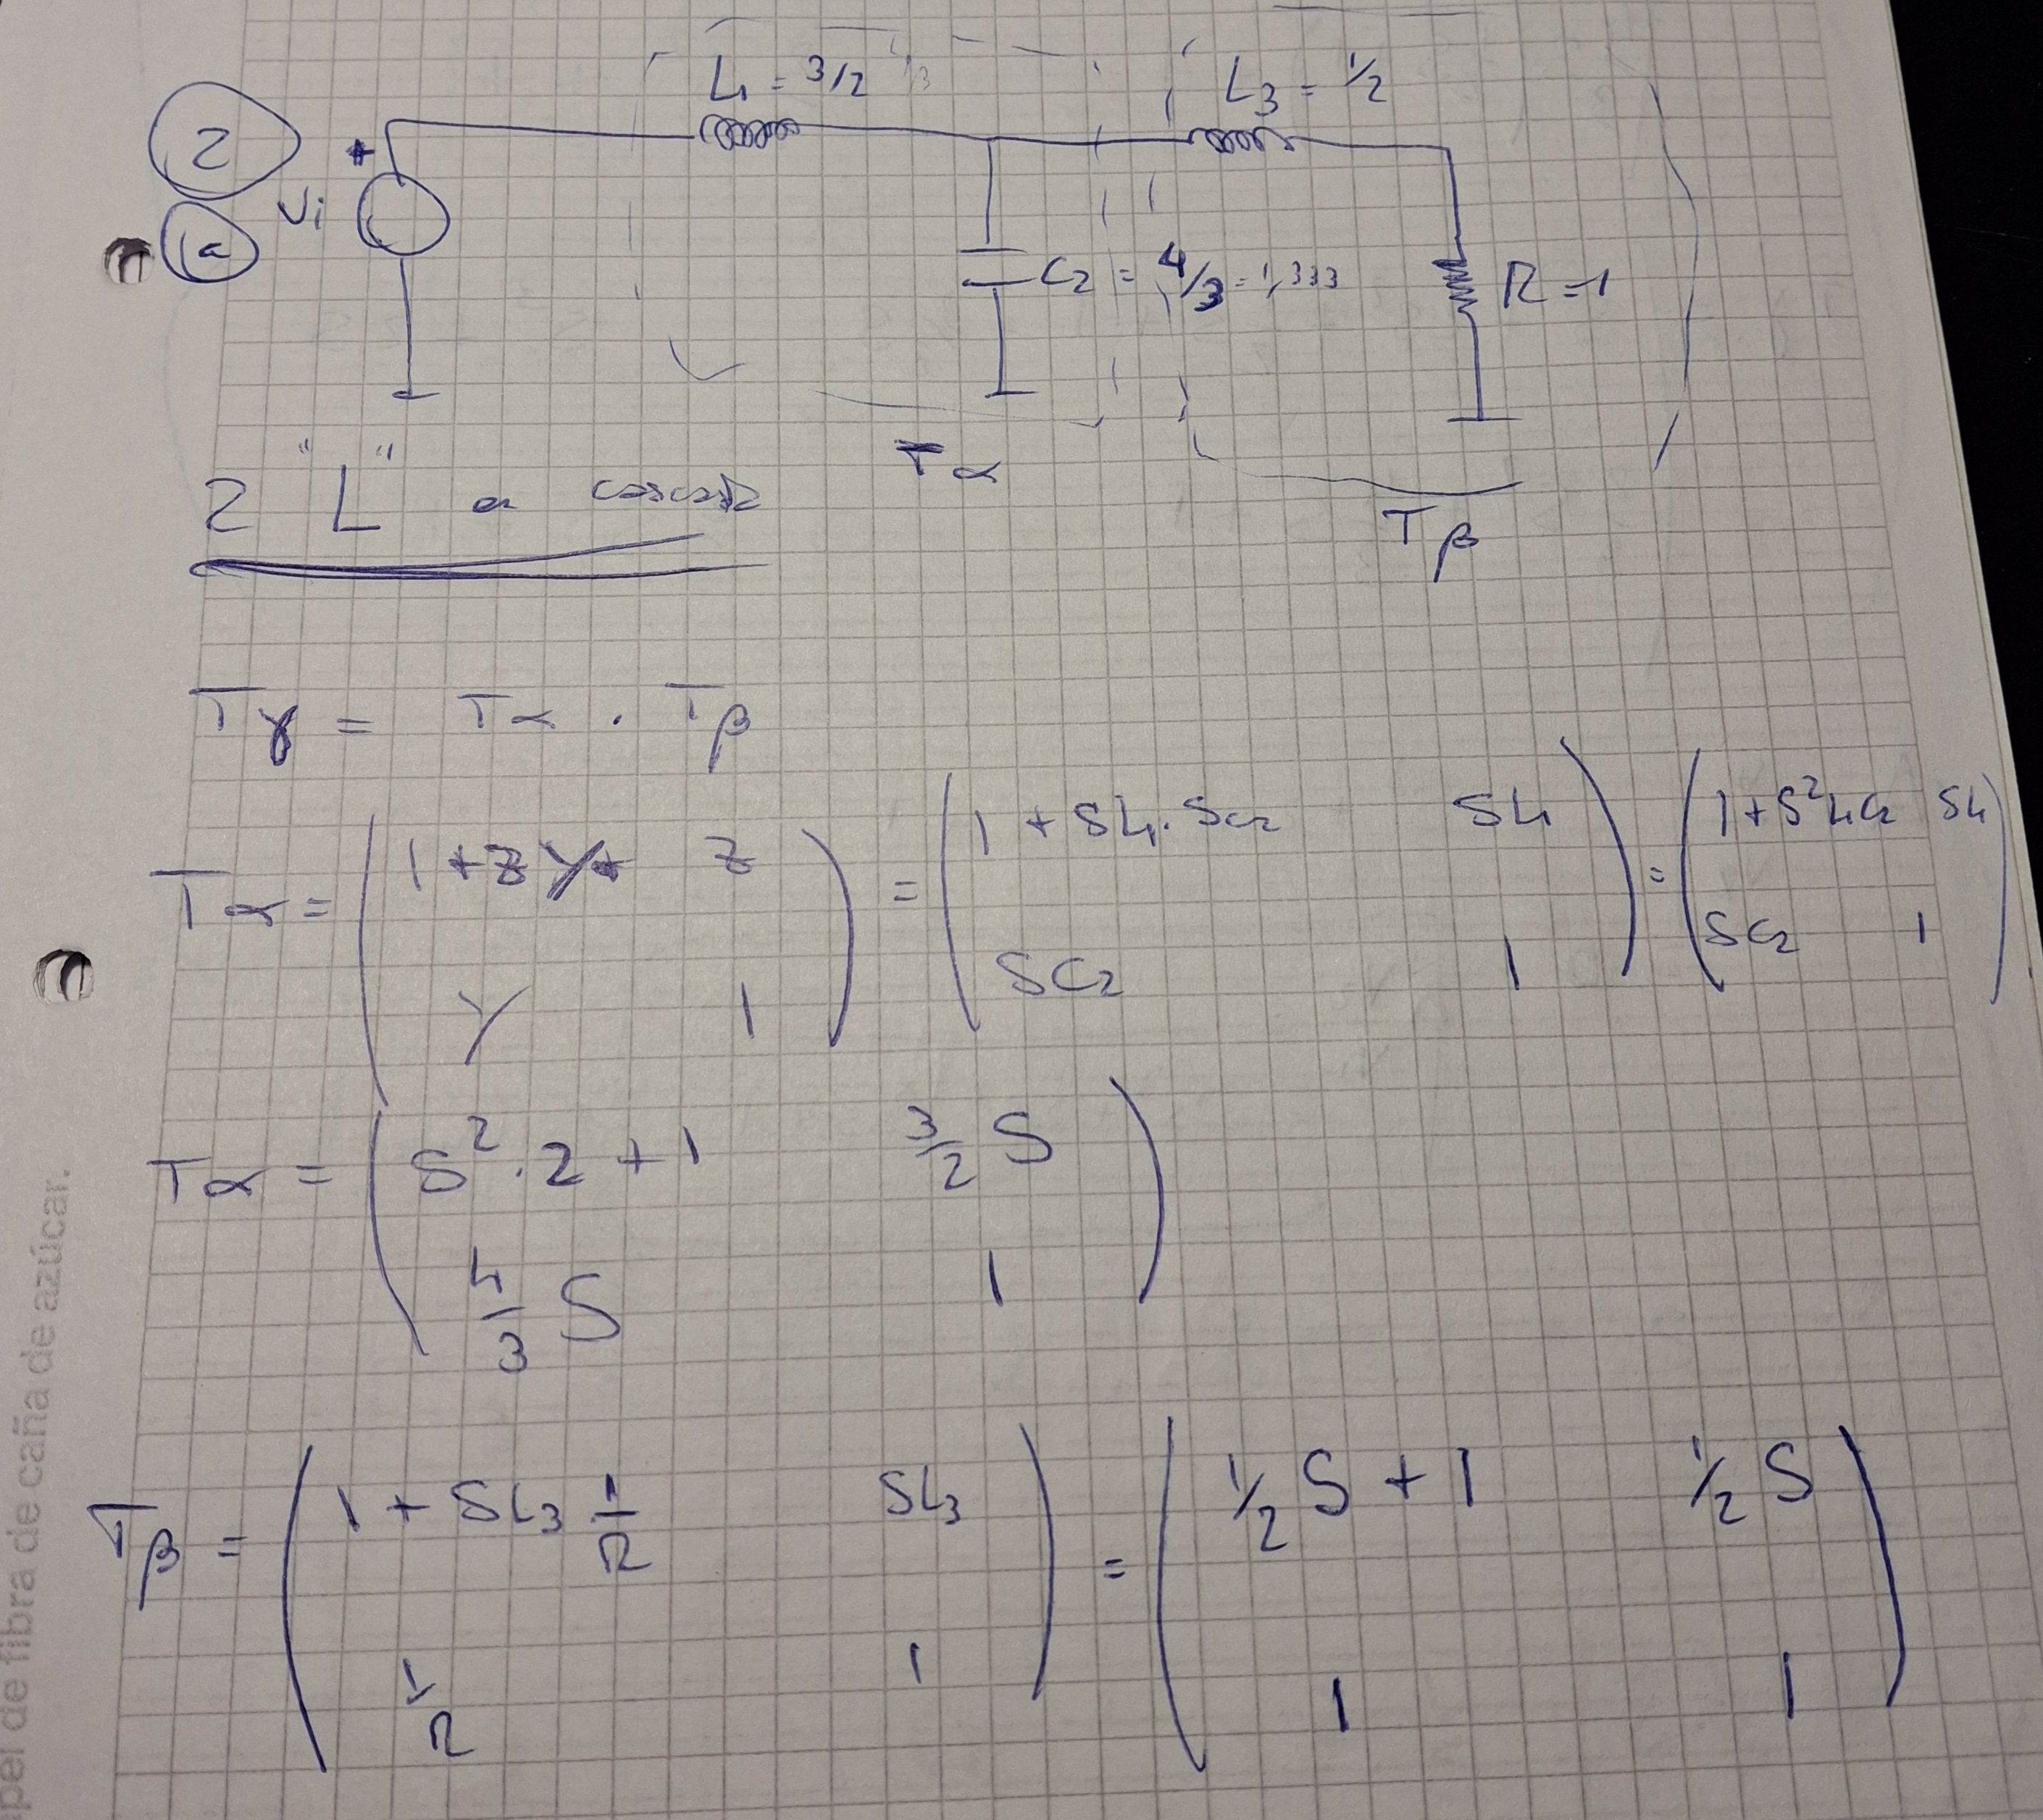 2
a
Vi
+
L1 = 3/2
L3 = 1/2
C2 = 4/3 = 1,333
R = 1
Tα
Tβ
2 "L" en cascada
Tγ = Tα . Tβ
Tα = ( 1 + ZY Z ; Y 1 ) = ( 1 + SL1 . SC2 SL1 ; SC2 1 ) = ( 1 + S²L1C2 SL1 ; SC2 1 )
Tα = ( S² . 2 + 1 3/2 S ; 4/3 S 1 )
Tβ = ( 1 + SL3 1/R SL3 ; 1/R 1 ) = ( 1/2 S + 1 1/2 S ; 1 1 )
pel de fibra de caña de azúcar.